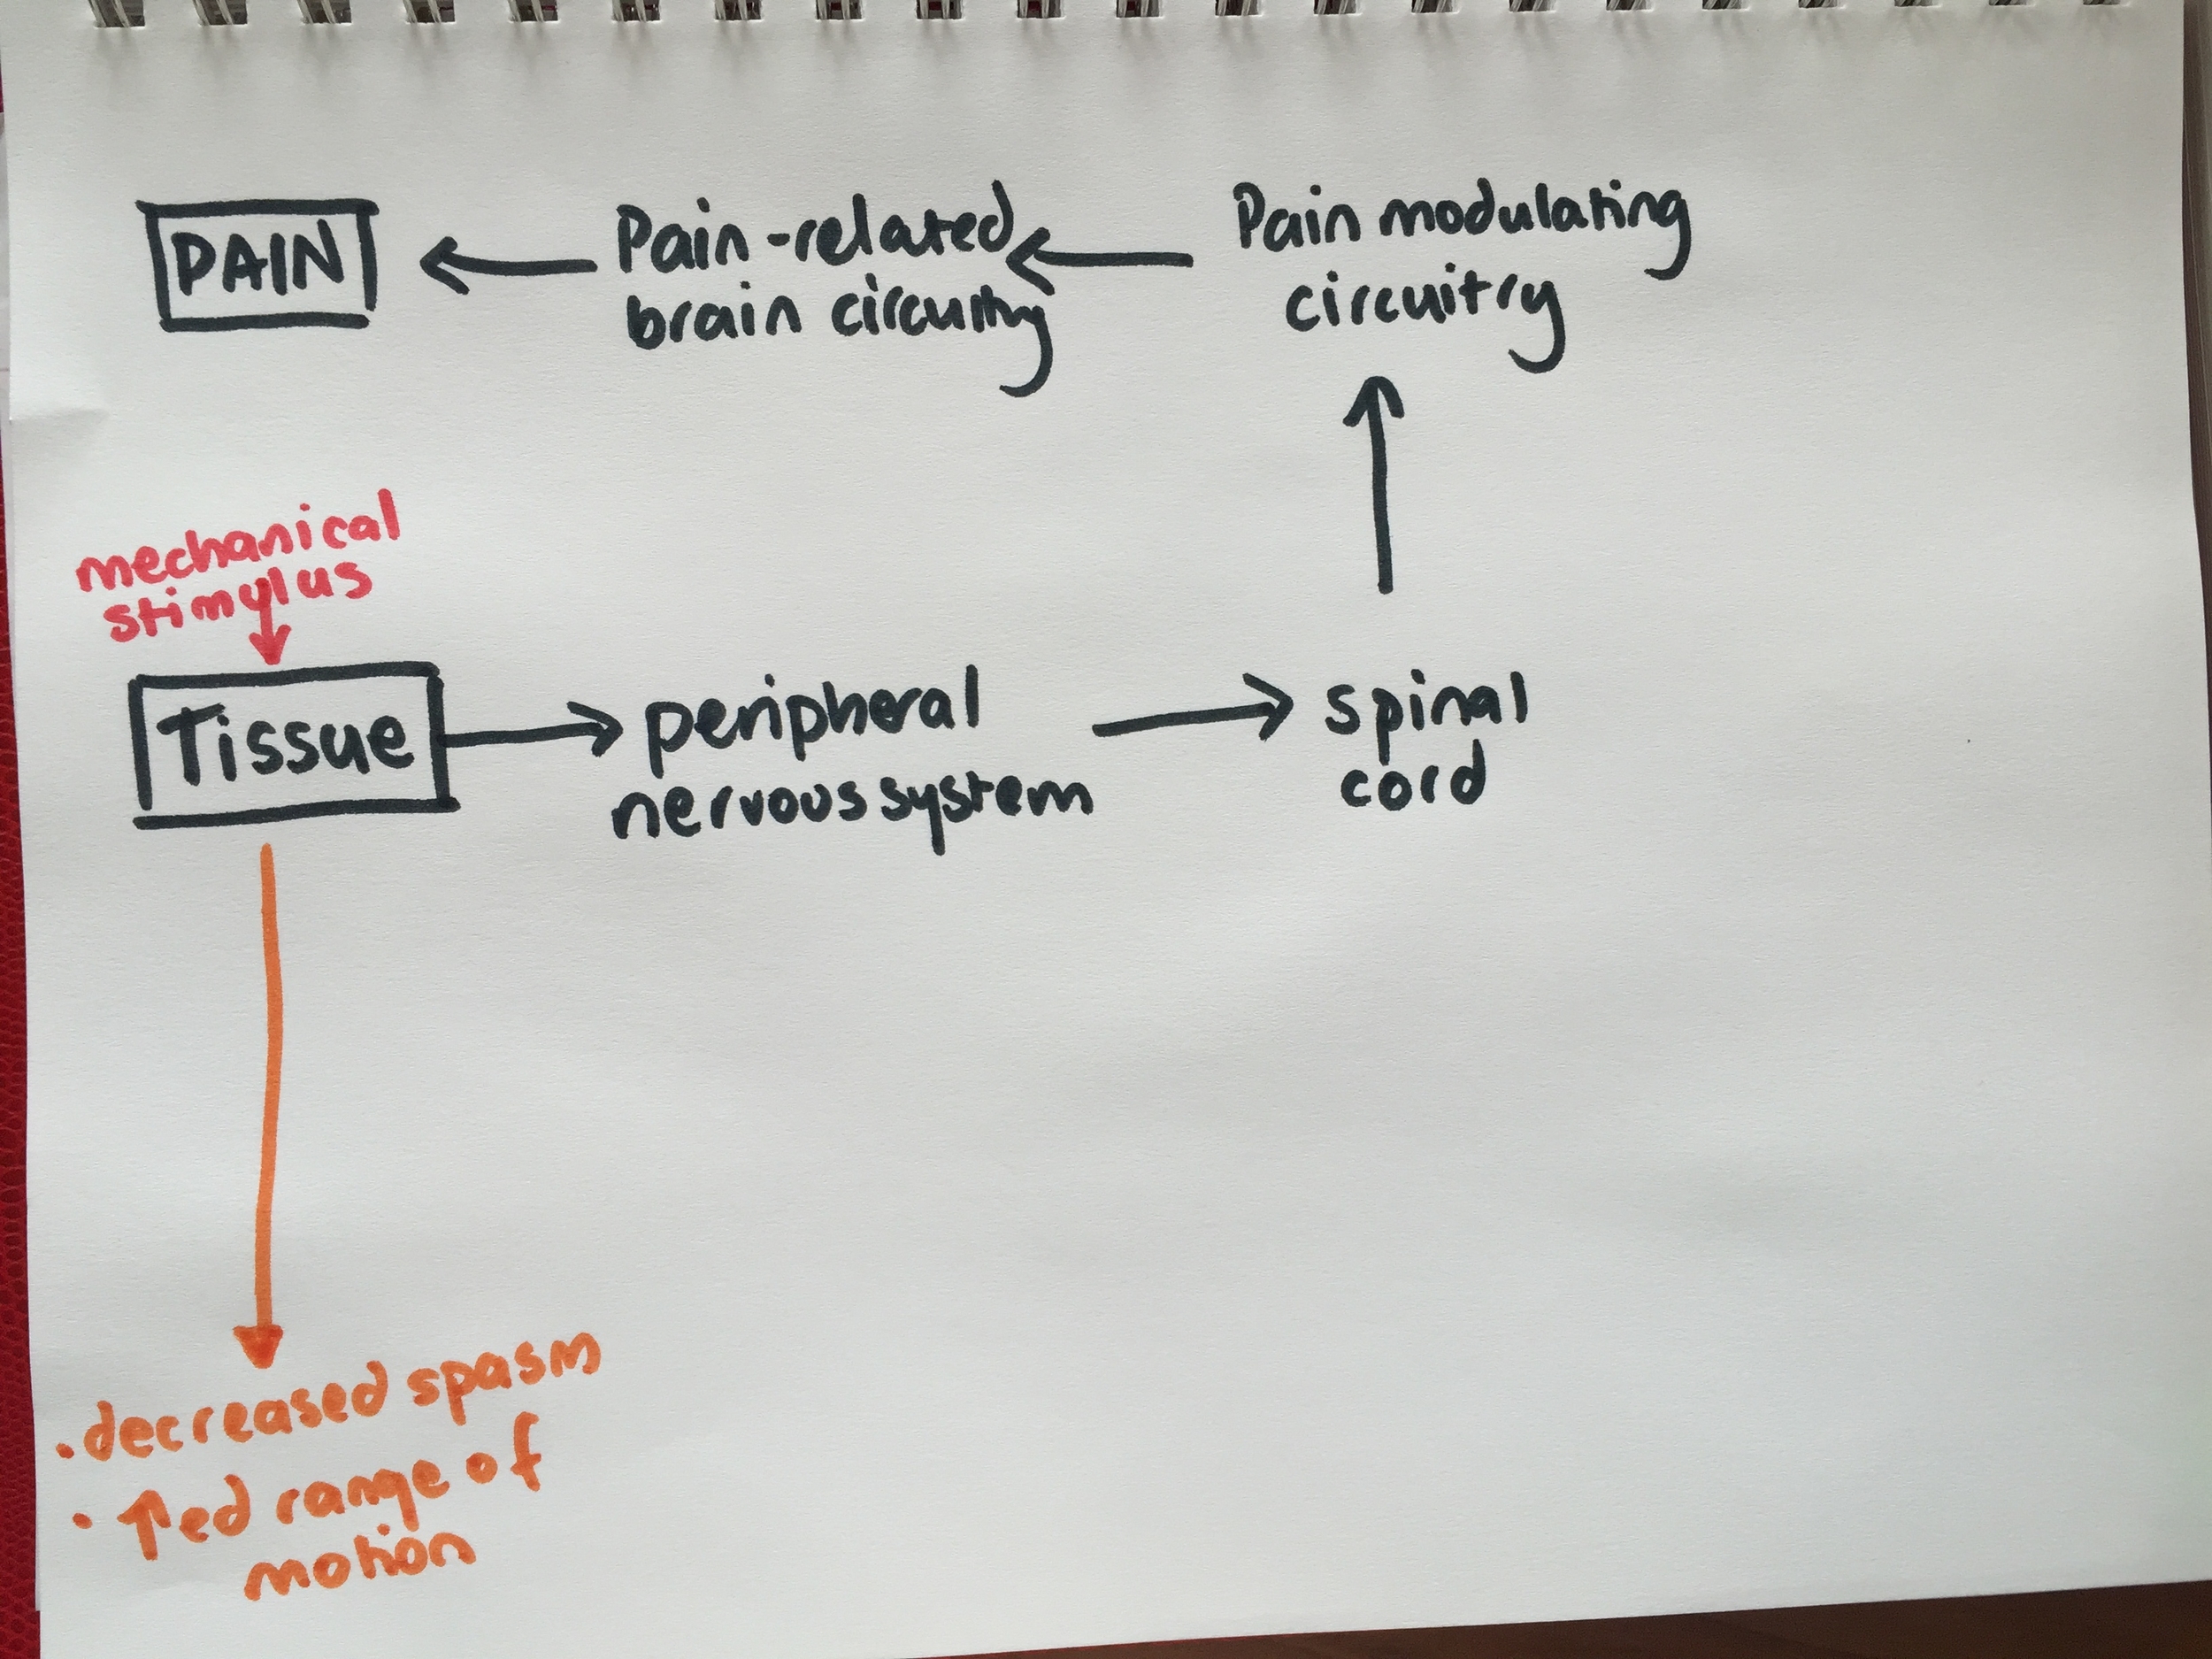 PAIN
Pain-related
brain circuitry
Pain modulating
circuitry
mechanical
stimulus
Tissue
peripheral
nervous system
spinal
cord
• decreased spasm
• ↑ed range of
motion